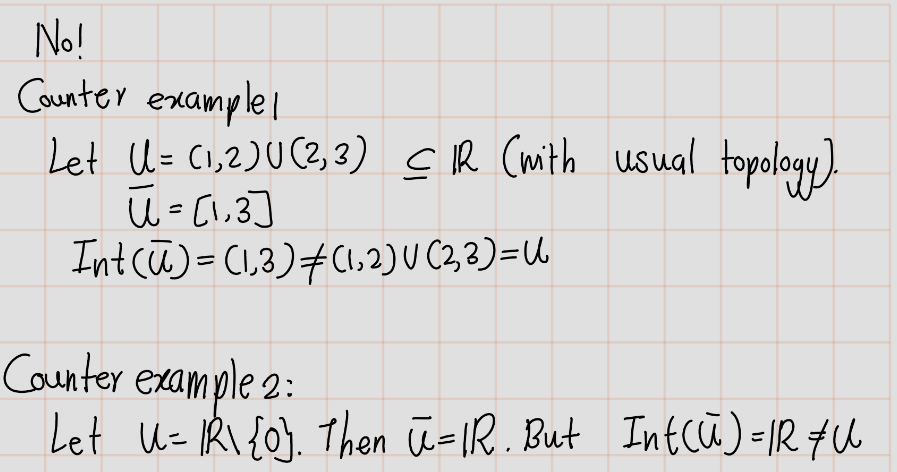 No!
Counter example 1
Let U = (1,2) U (2,3) ⊆ ℝ (with usual topology).
U̅ = [1,3]
Int(U̅) = (1,3) ≠ (1,2) U (2,3) = U
Counter example 2:
Let U = ℝ\{0}. Then U̅ = ℝ. But Int(U̅) = ℝ ≠ U